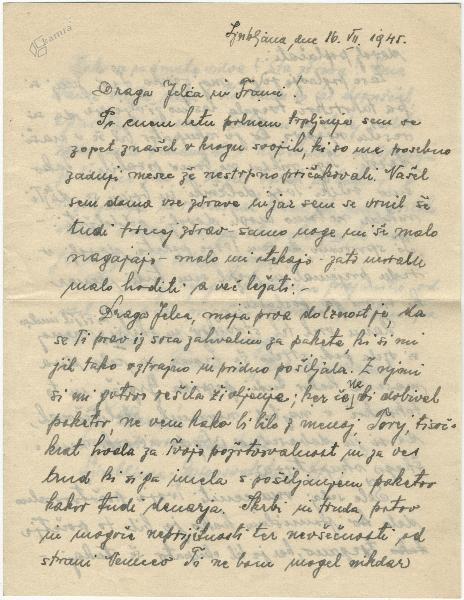 kamra
Ljubljana, dne 16. VII. 1945.
Draga Jelca in Franci!
Po enem letu polnem trpljenja sem se
zopet znašel v krogu svojih, ki so me posebno
zadnji mesec že nestrpno pričakovali. Našel
sem doma vse zdrave in jaz sem se vrnil še
tudi precej zdrav - samo noge mi še malo
nagajajo - malo mi otekajo - zato moram
malo hoditi a več ležati. -
Draga Jelca, moja prva dolžnost je, da
se Ti prav iz srca zahvalim za pakete, ki si mi
jih tako vztrajno in pridno pošiljala. Z njimi
si mi gotovo rešila življenje; ker če ne bi dobival
paketov ne vem kako bi bilo z menoj. Torej tisoč-
krat hvala za Tvojo požrtvovalnost in za ves
trud ki si ga imela s pošiljanjem paketov
kakor tudi denarja. Skrbi in truda, potov
in mogoče neprijetnosti ter nevšečnosti od
strani Nemcev Ti ne bom mogel nikdar